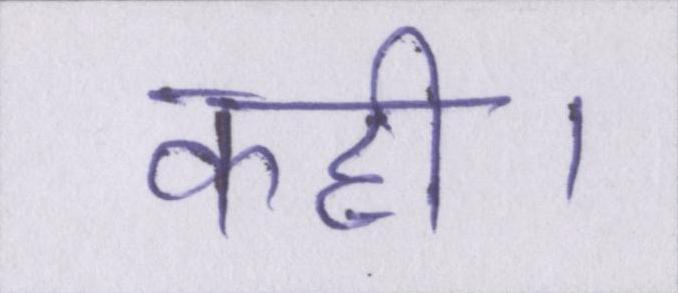 कही।